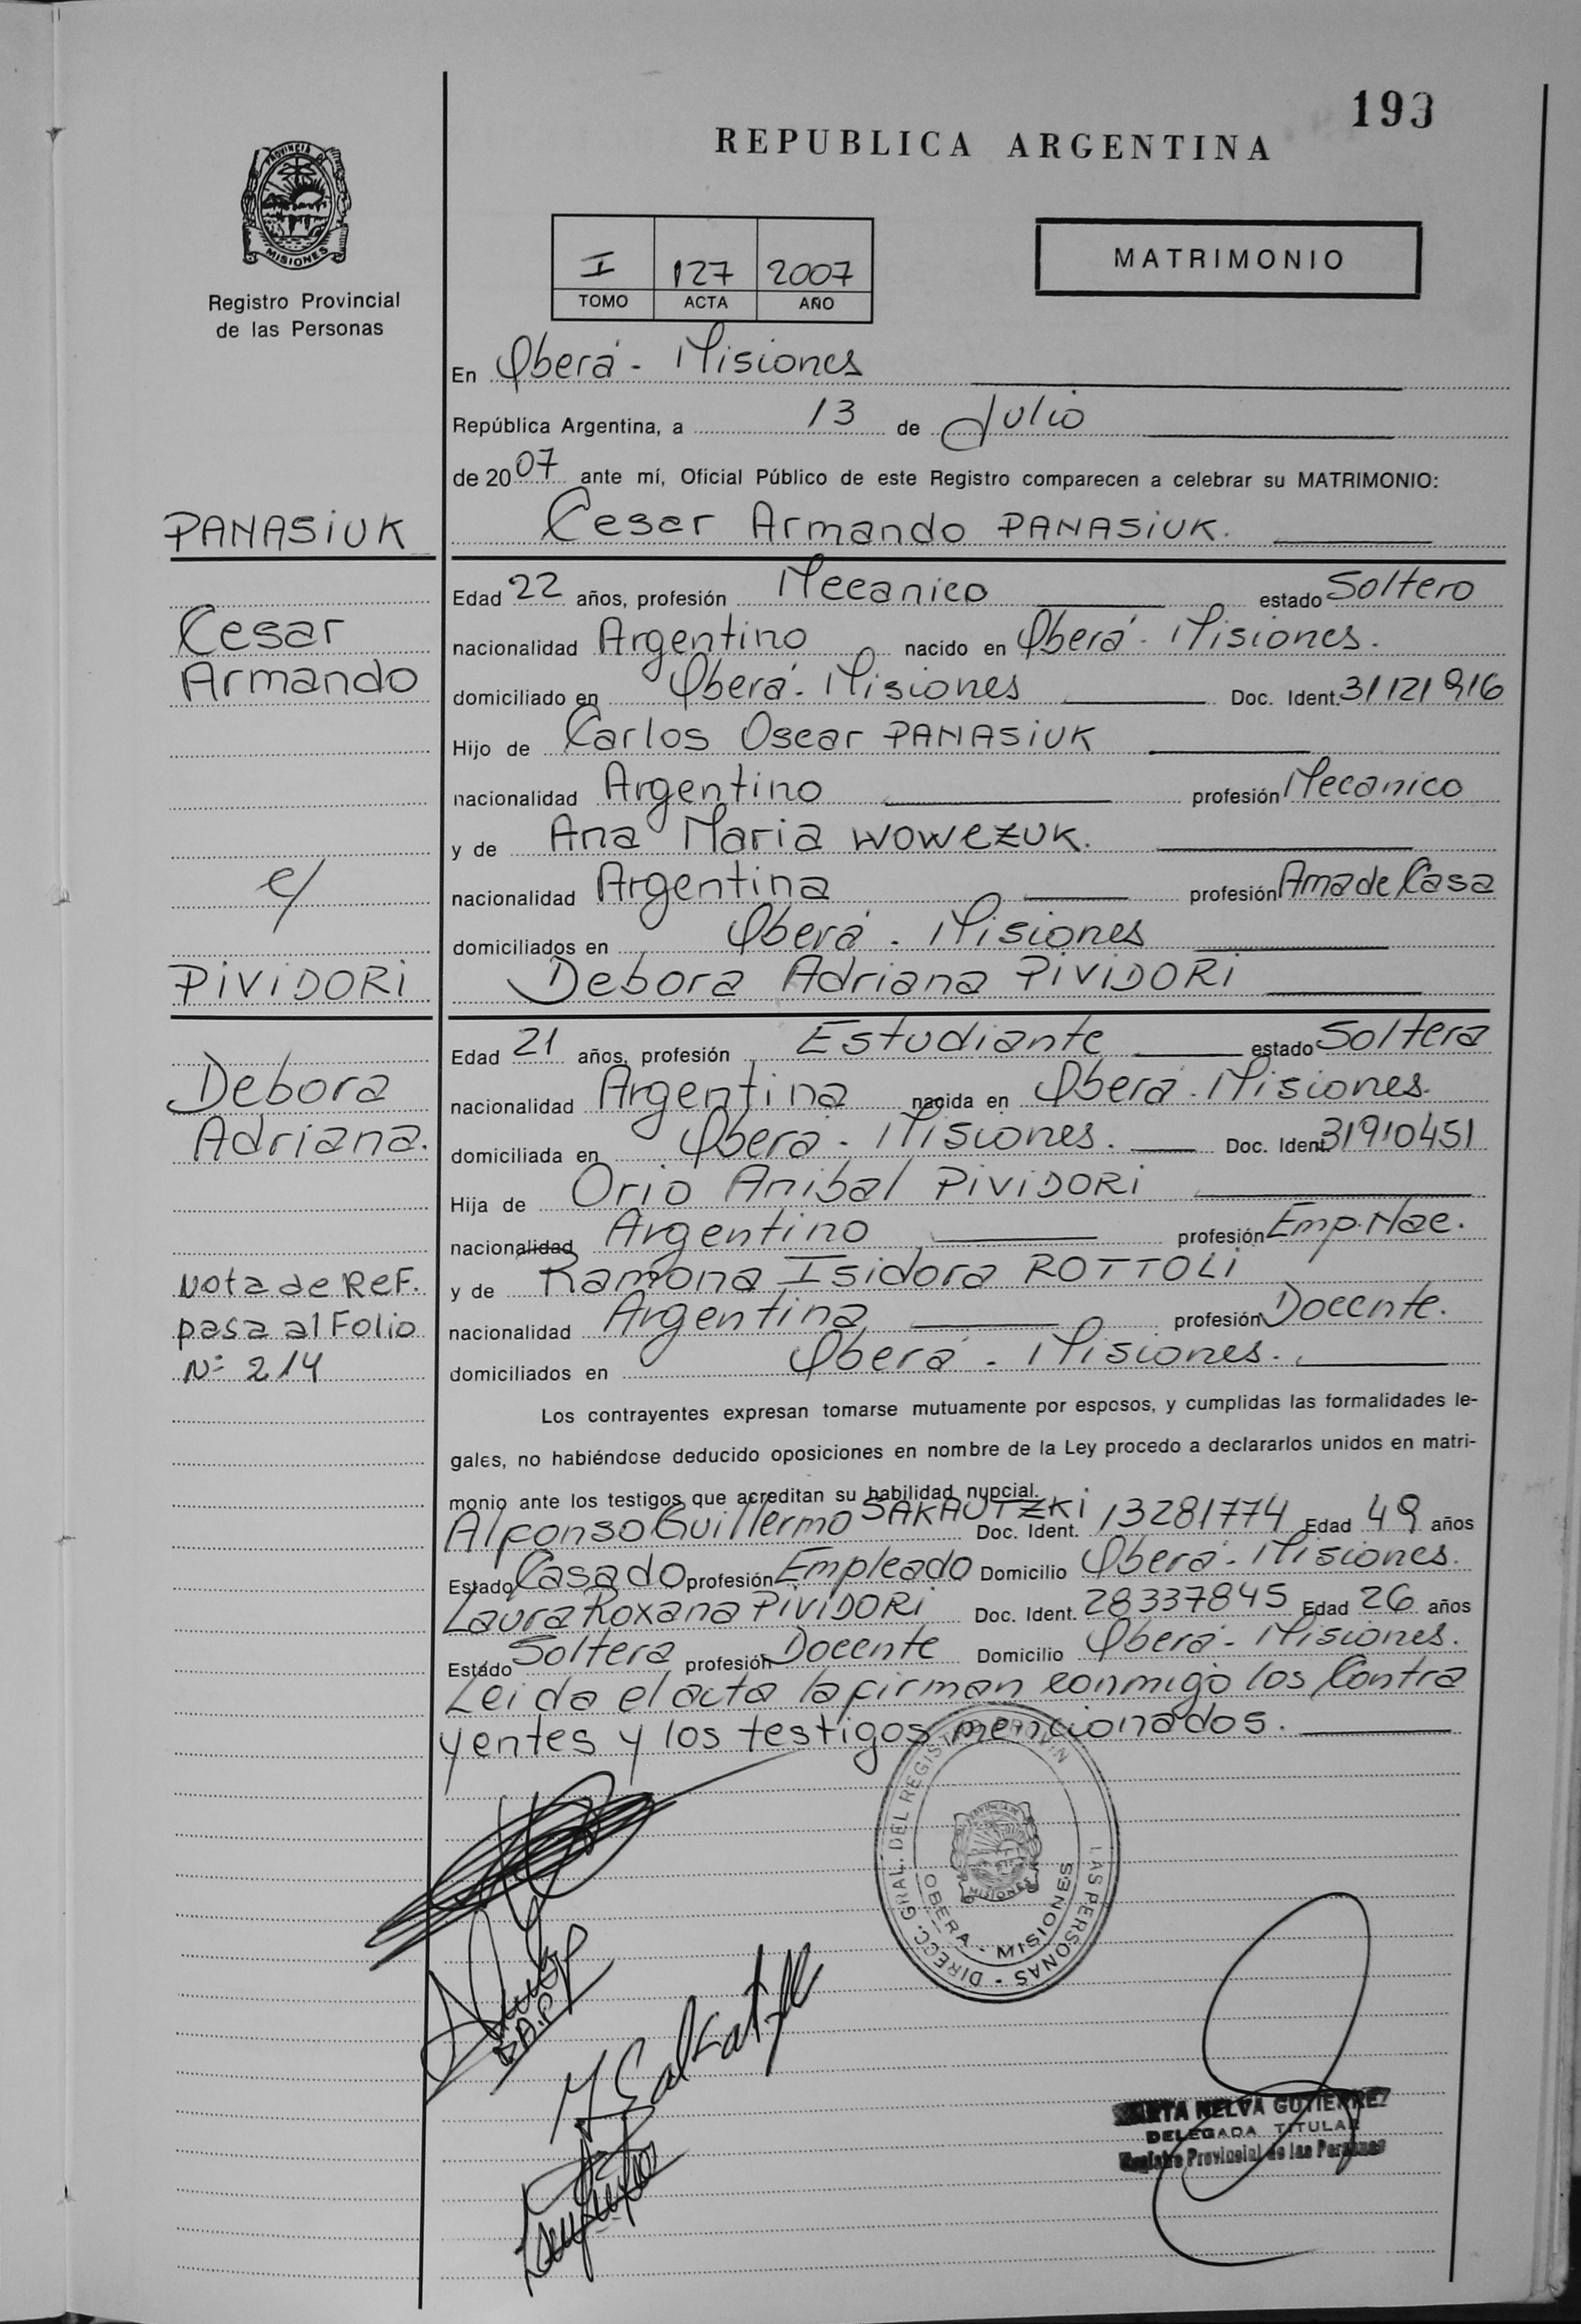 193
REPUBLICA ARGENTINA
PROVINCIA DE
MISIONES
Registro Provincial
de las Personas
I 127 2007
TOMO ACTA AÑO
MATRIMONIO
En Oberá - Misiones
República Argentina, a 13 de Julio
de 2007 ante mí, Oficial Público de este Registro comparecen a celebrar su MATRIMONIO:
PANASIUK
Cesar Armando PANASIUK.
Edad 22 años, profesión Mecanico estado Soltero
Cesar
nacionalidad Argentino nacido en Oberá - Misiones.
Armando
domiciliado en Oberá - Misiones Doc. Ident. 31121916
Hijo de Carlos Oscar PANASIUK
nacionalidad Argentino profesión Mecanico
y de Ana Maria WOWCZUK.
c/
nacionalidad Argentina profesión Ama de Casa
domiciliados en Oberá - Misiones
PIVIDORI
Debora Adriana PIVIDORI
Edad 21 años, profesión Estudiante estado Soltera
Debora
nacionalidad Argentina nacida en Oberá - Misiones.
Adriana.
domiciliada en Oberá - Misiones. Doc. Ident. 31910451
Hija de Orio Anibal PIVIDORI
nacionalidad Argentino profesión Emp. Nac.
Nota de Ref.
y de Ramona Isidora ROTTOLI
pasa al Folio
nacionalidad Argentina profesión Docente.
Nº 214
domiciliados en Oberá - Misiones.
Los contrayentes expresan tomarse mutuamente por esposos, y cumplidas las formalidades le-
gales, no habiéndose deducido oposiciones en nombre de la Ley procedo a declararlos unidos en matri-
monio ante los testigos que acreditan su habilidad nupcial.
Alfonso Guillermo SAKAUTZKI Doc. Ident. 13281774 Edad 49 años
Estado Casado profesión Empleado Domicilio Oberá - Misiones.
Laura Roxana PIVIDORI Doc. Ident. 28337845 Edad 26 años
Estado Soltera profesión Docente Domicilio Oberá - Misiones.
Leida el acta la firman conmigo los Contra
yentes y los testigos mencionados.
DIRECC. GRAL. DEL REGISTRO PROVIN LAS PERSONAS
OBERA - MISIONES
MISIONES
NELVA GUTIERREZ
DELEGADA TITULAR
Registro Provincial de las Personas